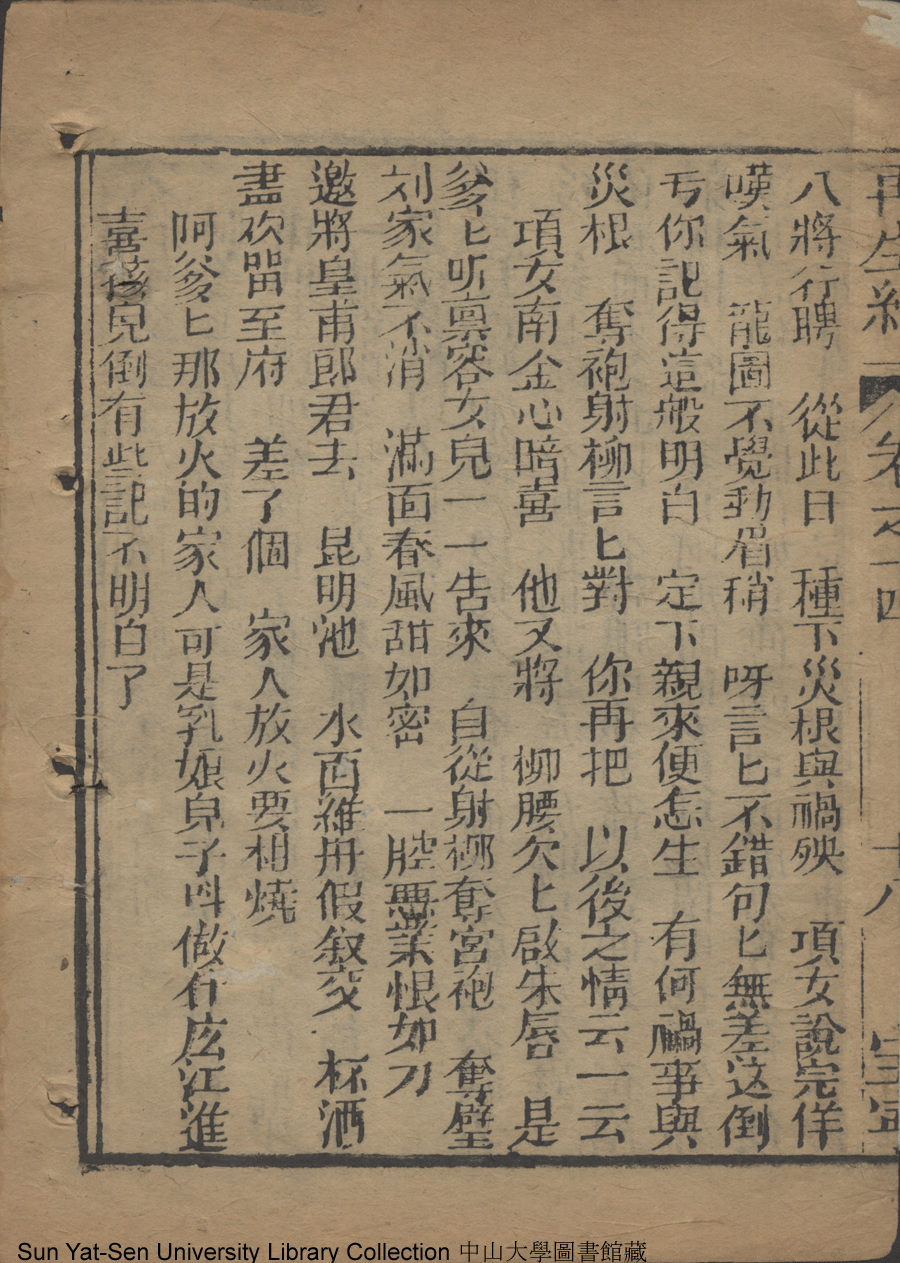 再生緣 卷之十四 十八
八將行聘 從此日 種下災根與禍殃 項女說完佯
嘆氣 龍圖不覺動眉稍 呀言匕不錯句匕無差这倒
亐你記得這般明白 定下親來便怎生 有何禍事與
災根 奪袍射柳言匕對 你再把 以後之情云一云
項女南金心暗喜 他又將 柳腰欠匕啟朱唇 是
爹匕听禀容女兒一一告來 自從射柳奪宮袍 奪壁
刘家氣不消 滿面春風甜如密 一腔惡業恨如刀
邀將皇甫郎君去 昆明池 水面維舟假叙交 杯酒
盡欢畱至府 差了個 家人放火要相燒
阿爹匕那放火的家人可是乳娘皃子呌做什庅江進
喜孩兒倒有些記不明白了
Sun Yat-Sen University Library Collection 中山大學圖書館藏